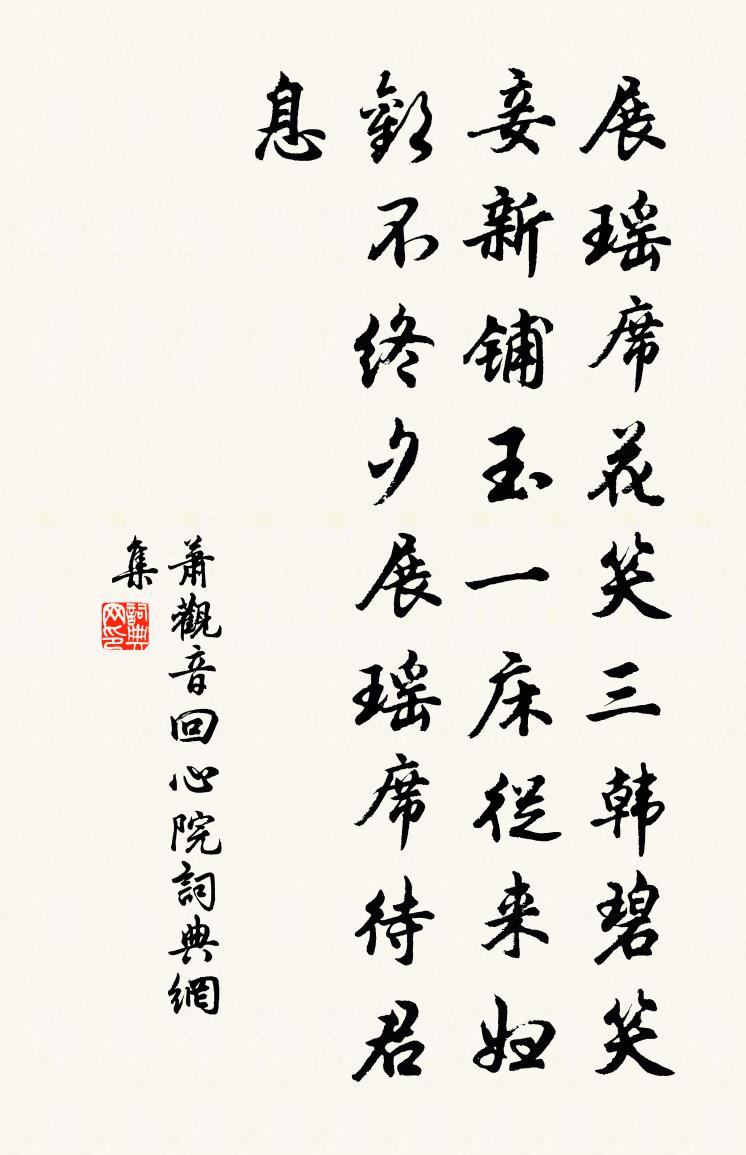 展瑶席花笑三韩碧笑
妾新铺玉一床従来妇
歡不终夕展瑶席待君
息
萧觀音回心院詞典網
集
詞典网印